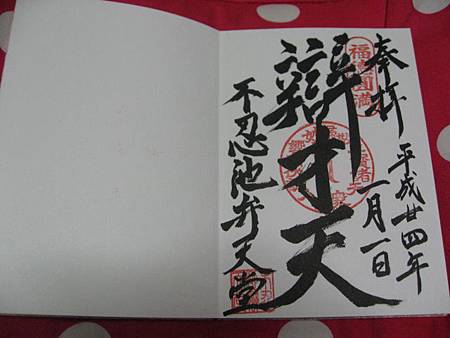 奉拝
平成廿四年
一月一日
福徳圓満
辯才天
不忍池弁天堂